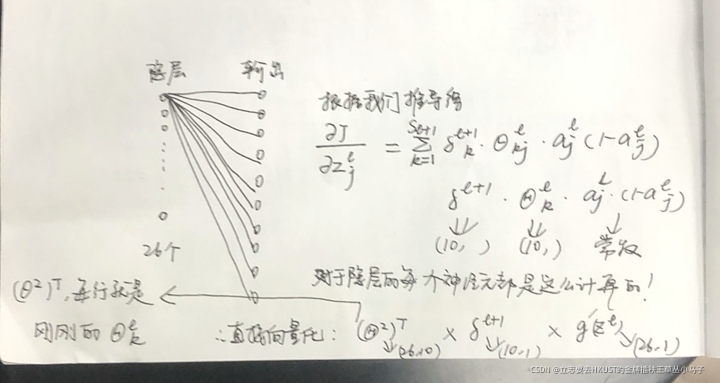 隐层 输出
根据我们推导得
∂J/∂Z_j^l = Σ_{k=1}^{S_{l+1}} δ_k^{l+1} · Θ_{kj}^l · a_j^l (1-a_j^l)
δ^{l+1} · Θ_k^l · a_j^l · (1-a_j^l)
(10, ) (10, ) 常数
26个
对于隐层的每个神经元都是这么计算的!
(Θ²)^T, 每行就是
刚刚的 Θ_k^l
∴直接向量化: (Θ²)^T × δ^{l+1} × g'(z^l)
(26,10) (10,1) (26,1)
CSDN @立志要去HKUST的金林摇秋王草丛小马子